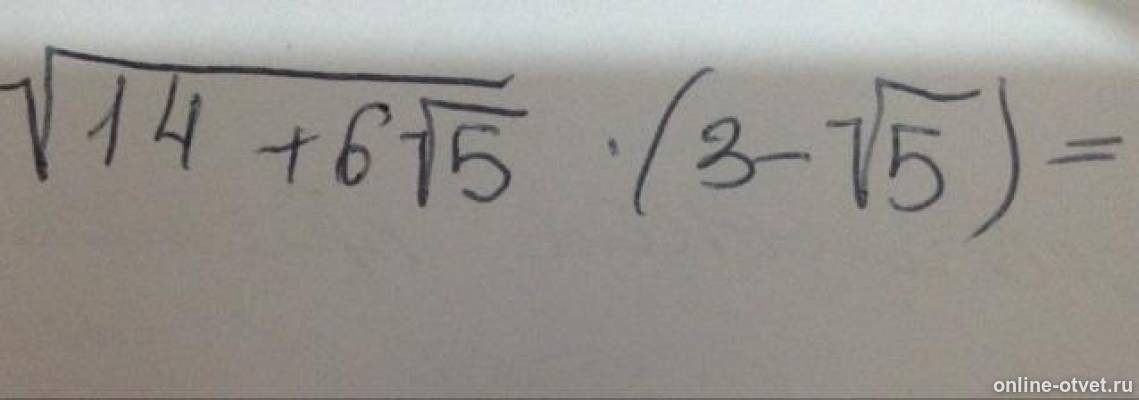 √(14 + 6√5) · (3 - √5) =
online-otvet.ru